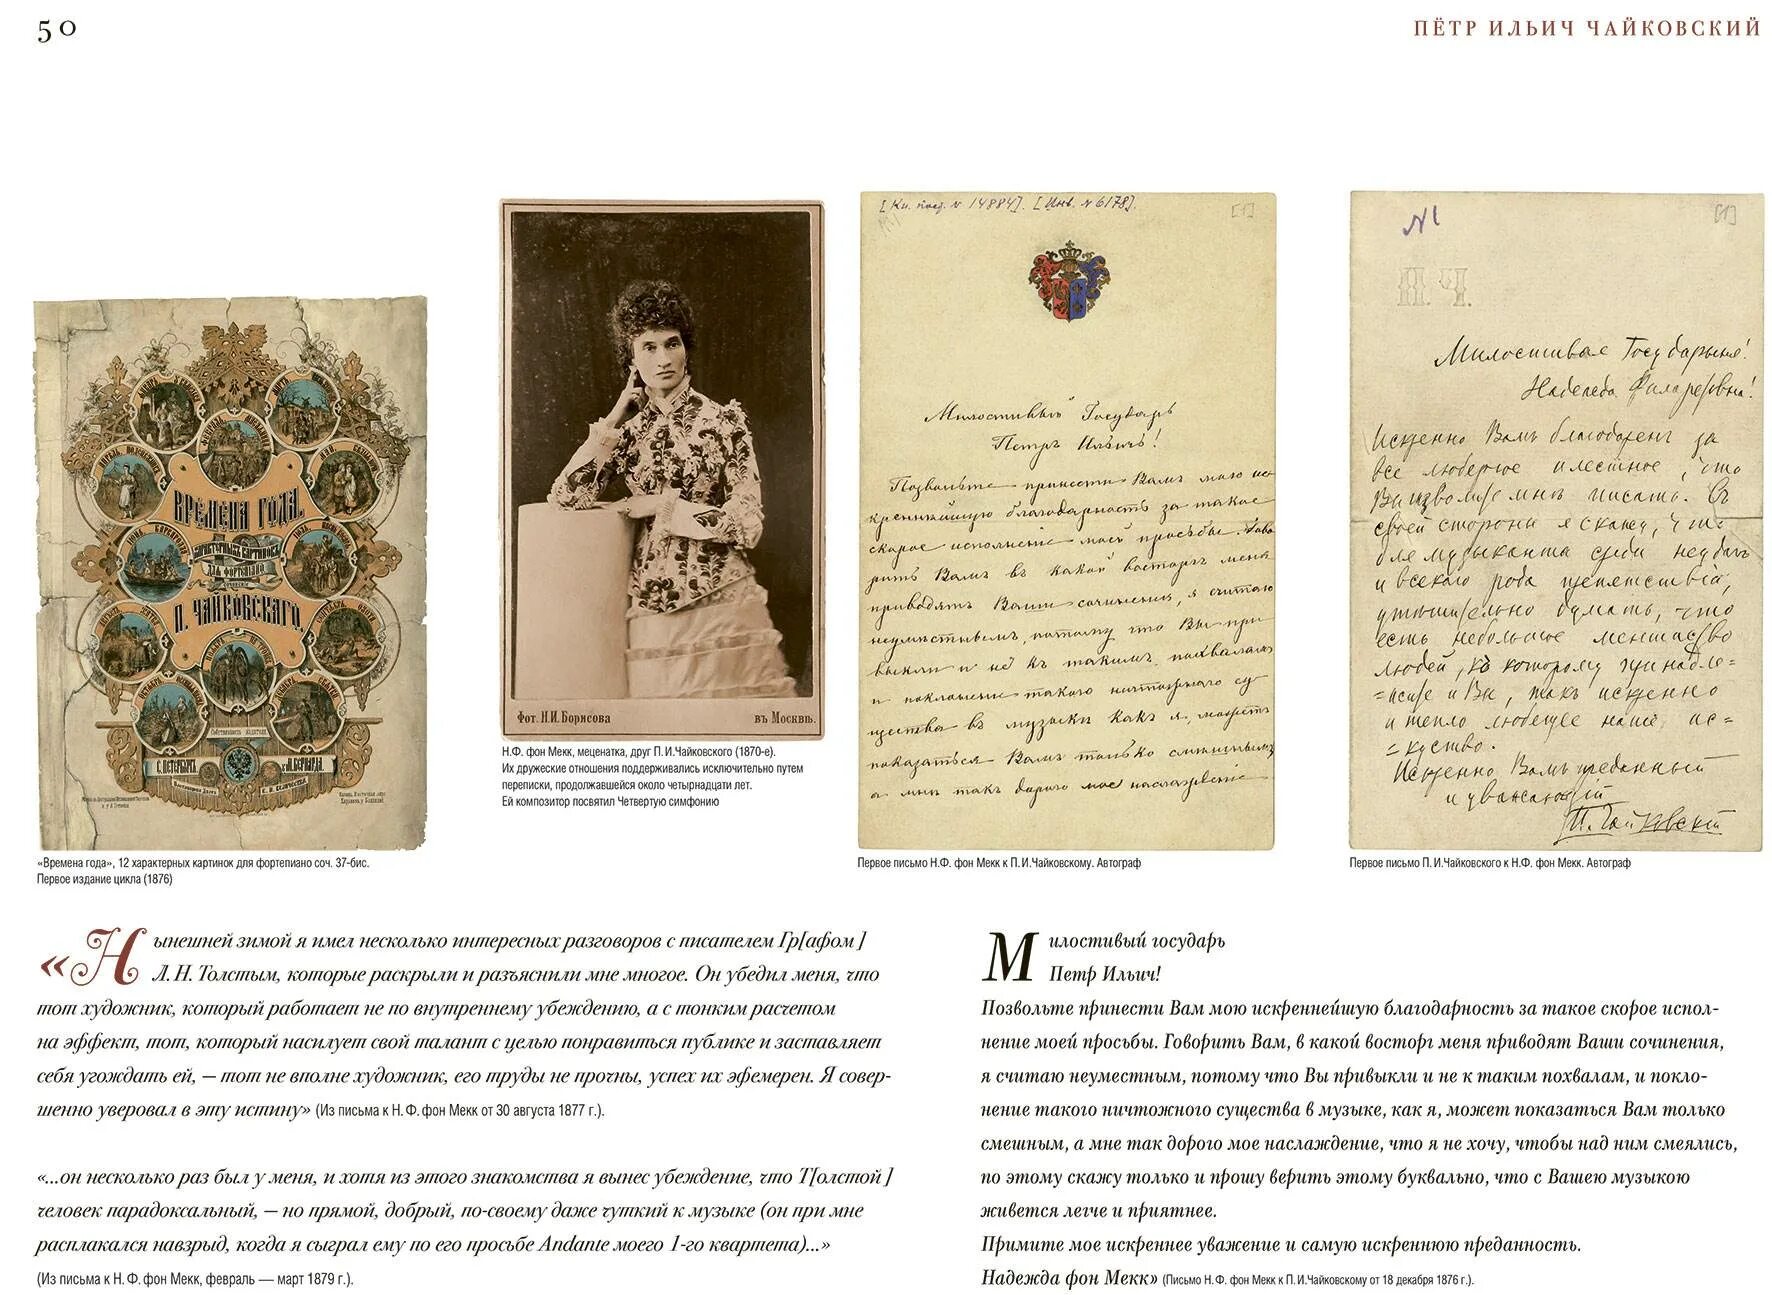 50
ПЁТР ИЛЬИЧ ЧАЙКОВСКИЙ
ВРЕМЕНА ГОДА.
ХАРАКТЕРНЫХЪ КАРТИНОКЪ
ДЛЯ ФОРТЕПІАНО
П. ЧАЙКОВСКАГО.
С. ПЕТЕРБУРГЪ
у Н. БЕРНАРДА.
«Времена года», 12 характерных картинок для фортепиано соч. 37-бис.
Первое издание цикла (1876)
Фот. Н.И.Борисова въ Москвѣ.
Н.Ф. фон Мекк, меценатка, друг П.И.Чайковского (1870-е).
Их дружеские отношения поддерживались исключительно путем
переписки, продолжавшейся около четырнадцати лет.
Ей композитор посвятил Четвертую симфонию
[Кн. пост. № 14884]. [Инв. № 6178].
[1]
Милостивый Государь
Петръ Ильичъ!
Позвольте принести Вамъ мою ис
креннѣйшую благодарность за такое
скорое исполненіе моей просьбы. Гово
рить Вамъ въ какой восторгъ меня
приводятъ Ваши сочиненія, я считаю
неумѣстнымъ, потому что Вы при
выкли и не къ такимъ похваламъ
и поклоненіе такого ничтожнаго су
щества въ музыкѣ какъ я, можетъ
показаться Вамъ только смѣшнымъ
а мнѣ такъ дорого мое наслажденіе
Первое письмо Н.Ф. фон Мекк к П.И.Чайковскому. Автограф
№1
[1]
П.Ч.
Милостивая Государыня!
Надежда Филаретовна!
Искренно Вамъ благодаренъ за
все любезное и лестное, что
Вы изволите мнѣ писать. Съ
своей стороны я скажу, что
для музыканта среди неудачъ
и всякаго рода препятствій,
утѣшительно думать, что
есть небольшое меньшинство
людей, къ которому принадле=
=жите и Вы, такъ искренно
и тепло любящее наше ис=
=куство.
Искренно Вамъ преданный
и уважающій
П. Чайковскій
Первое письмо П.И.Чайковского к Н.Ф. фон Мекк. Автограф
«Нынешней зимой я имел несколько интересных разговоров с писателем Гр[афом]
Л. Н. Толстым, которые раскрыли и разъяснили мне многое. Он убедил меня, что
тот художник, который работает не по внутреннему убеждению, а с тонким расчетом
на эффект, тот, который насилует свой талант с целью понравиться публике и заставляет
себя угождать ей, — тот не вполне художник, его труды не прочны, успех их эфемерен. Я совер-
шенно уверовал в эту истину» (Из письма к Н. Ф. фон Мекк от 30 августа 1877 г.).
«...он несколько раз был у меня, и хотя из этого знакомства я вынес убеждение, что Т[олстой]
человек парадоксальный, — но прямой, добрый, по-своему даже чуткий к музыке (он при мне
расплакался навзрыд, когда я сыграл ему по его просьбе Andante моего 1-го квартета)...»
(Из письма к Н. Ф. фон Мекк, февраль — март 1879 г.).
Милостивый государь
Петр Ильич!
Позвольте принести Вам мою искреннейшую благодарность за такое скорое испол-
нение моей просьбы. Говорить Вам, в какой восторг меня приводят Ваши сочинения,
я считаю неуместным, потому что Вы привыкли и не к таким похвалам, и покло-
нение такого ничтожного существа в музыке, как я, может показаться Вам только
смешным, а мне так дорого мое наслаждение, что я не хочу, чтобы над ним смеялись,
по этому скажу только и прошу верить этому буквально, что с Вашею музыкою
живется легче и приятнее.
Примите мое искреннее уважение и самую искреннюю преданность.
Надежда фон Мекк» (Письмо Н. Ф. фон Мекк к П.И.Чайковскому от 18 декабря 1876 г.).